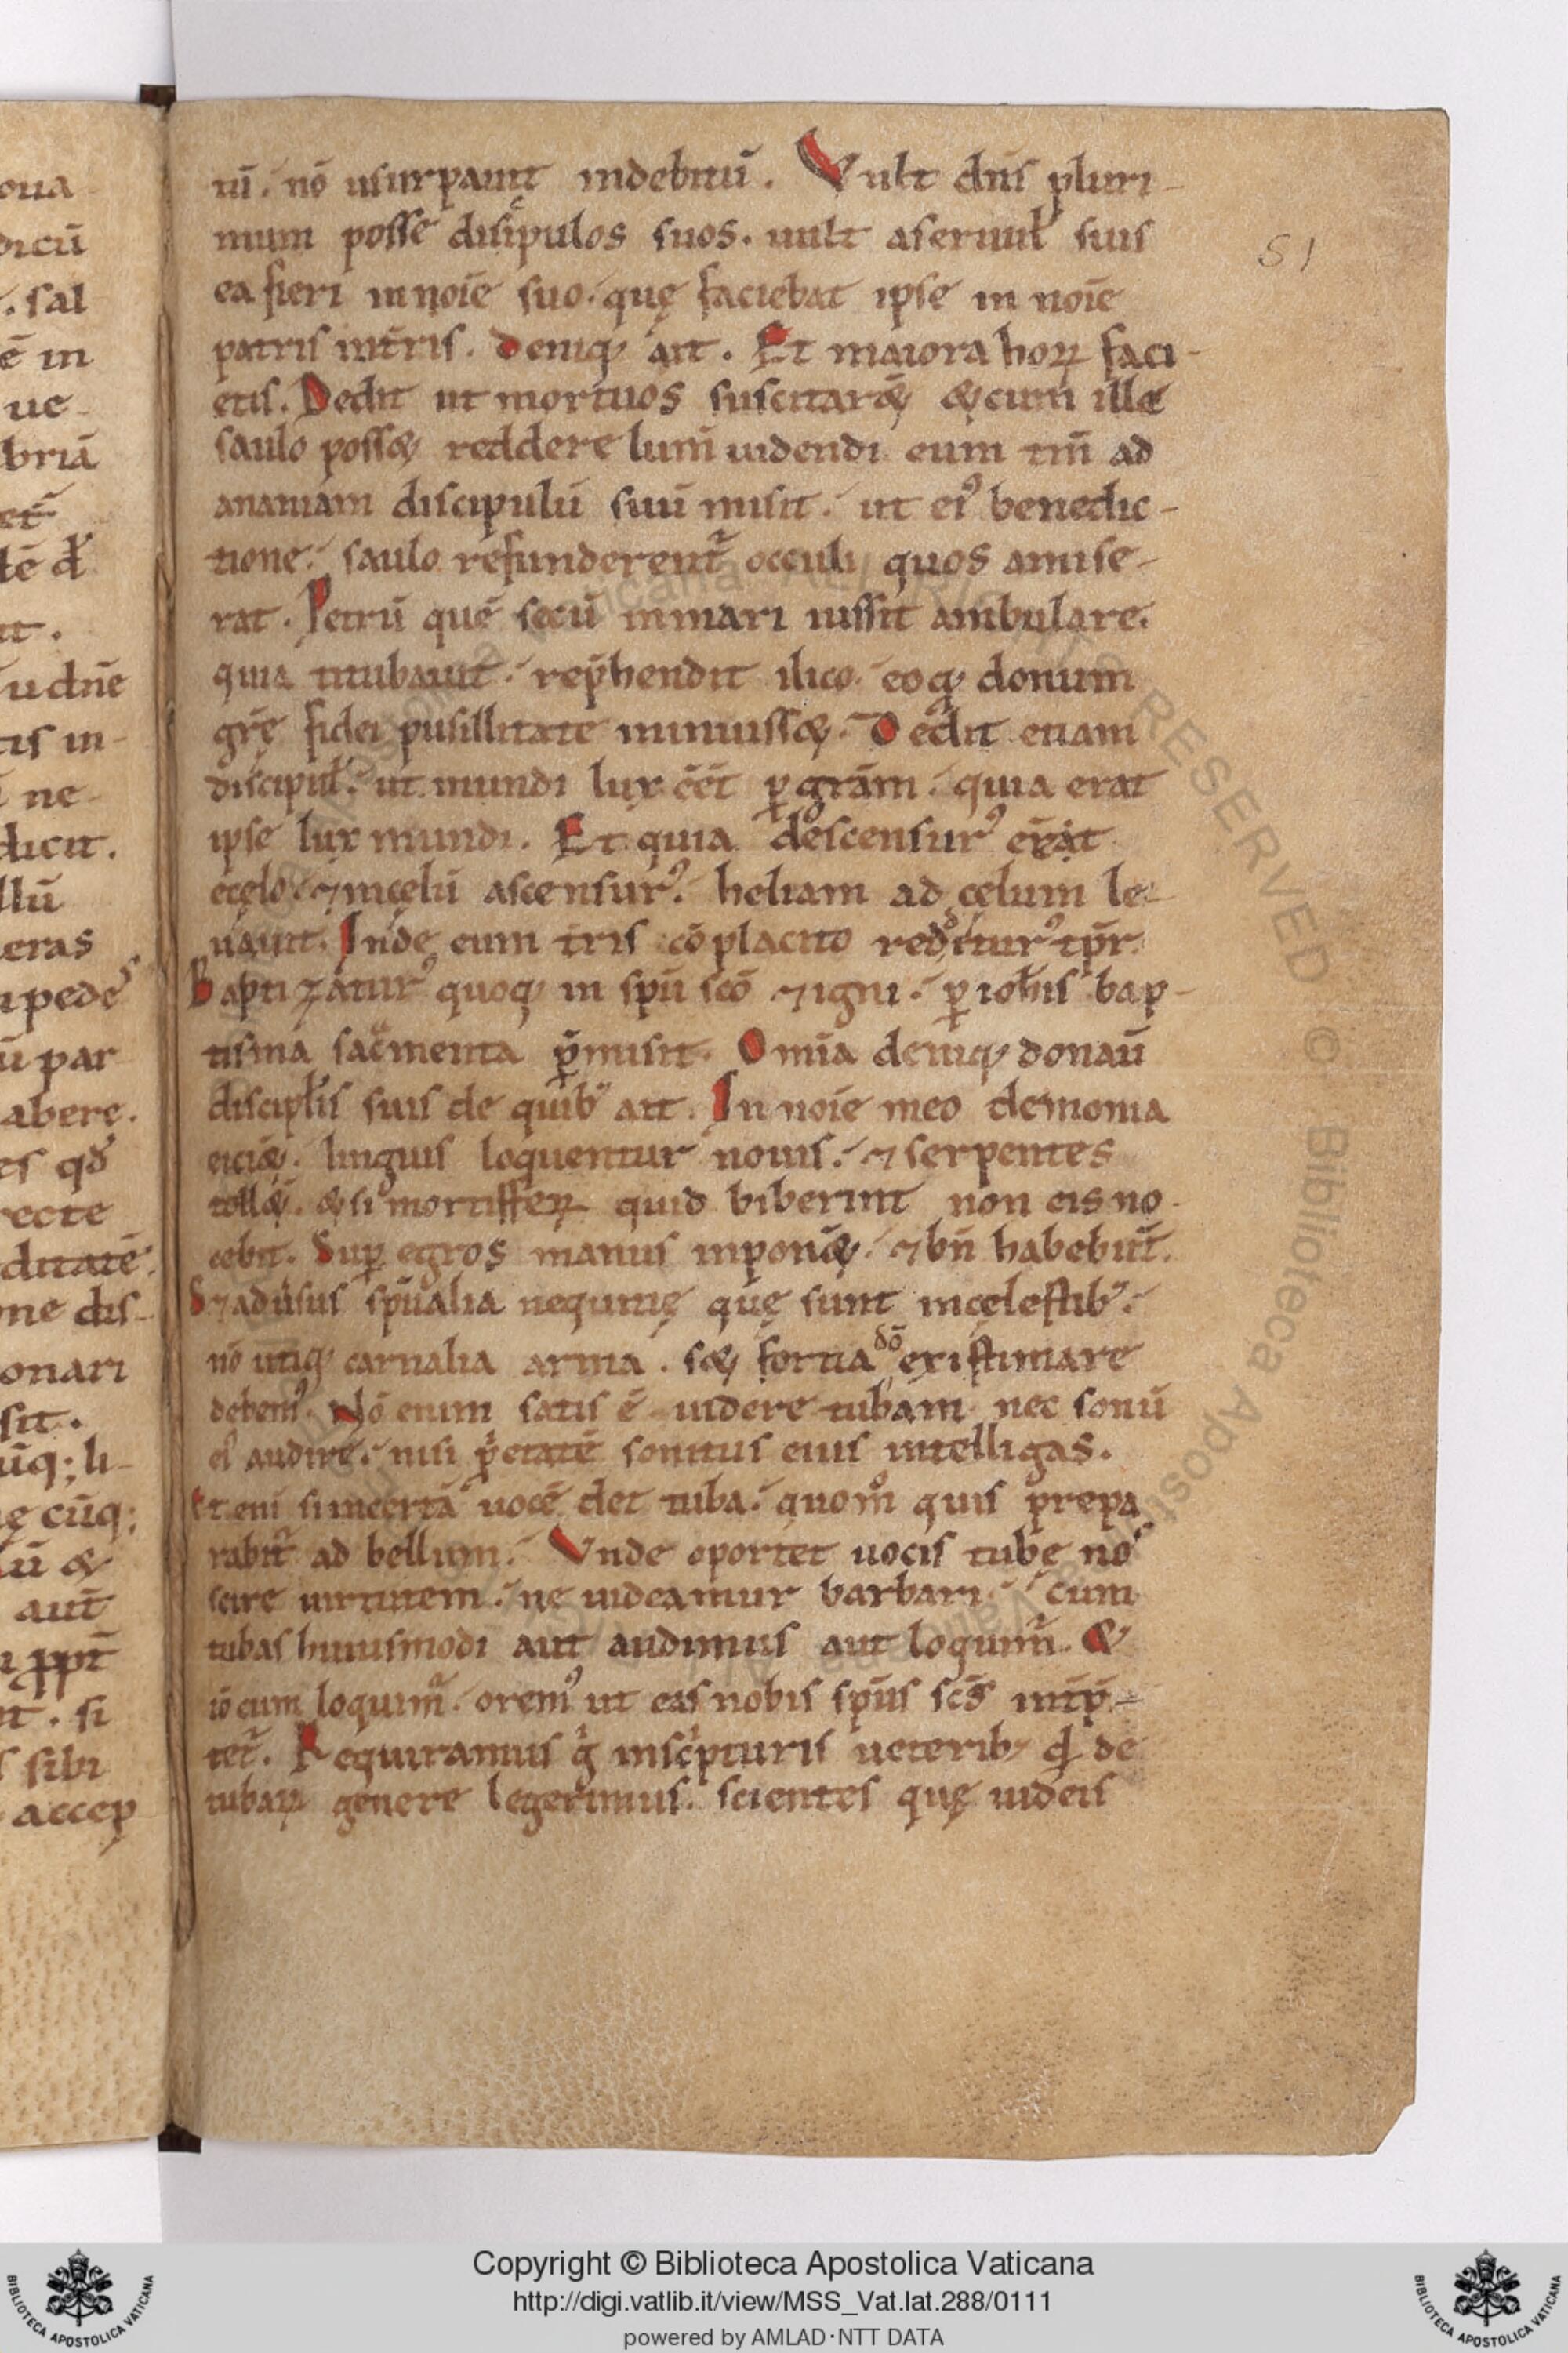 oua
dicū
. sal
ē in
ue
briā
et̄
tē đ
ut .
u dn̄e
tis in-
i ne-
dicit.
llū
eras
a pedes
ū par
abere.
es qđ
recte
ditatē.
one dis-
onari
sit.
ūq; li-
ę cūq;
ū &
aut̄
ꝓpt̄
t . si
sibi
accep
ui. nō usurpauit indebitū. Vult dn̄s pluri-
mum posse discipulos suos. uult a seruul̄ suis
ea fieri in noīe suo. quę faciebat ipse in noīe
patris nr̄is. Deniq; ait. Et maiora hoꝝ faci-
etis. Dedit ut mortuos suscitar&̄ & cum ille
saulo poss& reddere lum̄ uidendi eum tm̄ ad
ananiam discipulū suū misit. ut ei⁹ benedic-
tione. saulo refunderent̄ occuli quos amise-
rat. Petrū quē secū in mari iussit ambulare.
quia titubauit. rep̄hendit ilico. eoq; donum
gr̄ę fidei pusillitate minuiss&. Dedit etiam
discipul̄. ut mundi lux ēēt ꝑ gr̄am. quia erat
ipse lux mundi. Et quia de descensur⁹ erat
ecęlo. ⁊ incęlū ascensur⁹. heliam ad cęlum le-
uauit. Inde eum t̄ris cō placito redditur⁹ tp̄r.
Baptizatur⁹ quoq; in sp̄u sc̄o ⁊ igni. ꝑ ioh̄is bap-
tisma sac̄menta p̄misit. Omīa deniq; donau̅
discipl̄is suis de quib; ait. In noīe meo demonia
eici&̄. linguis loquentur nouis. ⁊ serpentes
toll&̄. & si mortifferꝝ quid biberint non eis no-
cebit. Suꝑ egros manus inpon&̄. ⁊ bn̄ habebūt.
S; ⁊ adūsus sp̄ualia nequitię quę sunt in cęlestib;.
nō utiq; carnalia arma. s& fortia dō existimare
debem⁹. Nō enim satis ē uidere tubam nec sonū
ei⁹ audire. nisi p̄etatē sonitus eius intelligas.
Et eni si incertā uocē det tuba. quom̊ quis prepa
rabit̄ ad bellum. Vnde oportet uocis tube nos
scire uirtutem. ne uideamur barbari. cum
tubas huiusmodi aut audimus aut loquim̄. &
iō cum loquim̄. orem⁹ ut eas nobis sp̄us sc̄s int̄p̄-
tet̄. Requiramus g̊ in sc̄pturis ueterib; qđ de
tubaꝝ genere legerimus. scientes quę uideis
51
Copyright © Biblioteca Apostolica Vaticana
http://digi.vatlib.it/view/MSS_Vat.lat.288/0111
powered by AMLAD·NTT DATA
BIBLIOTECA APOSTOLICA VATICANA
BIBLIOTECA APOSTOLICA VATICANA